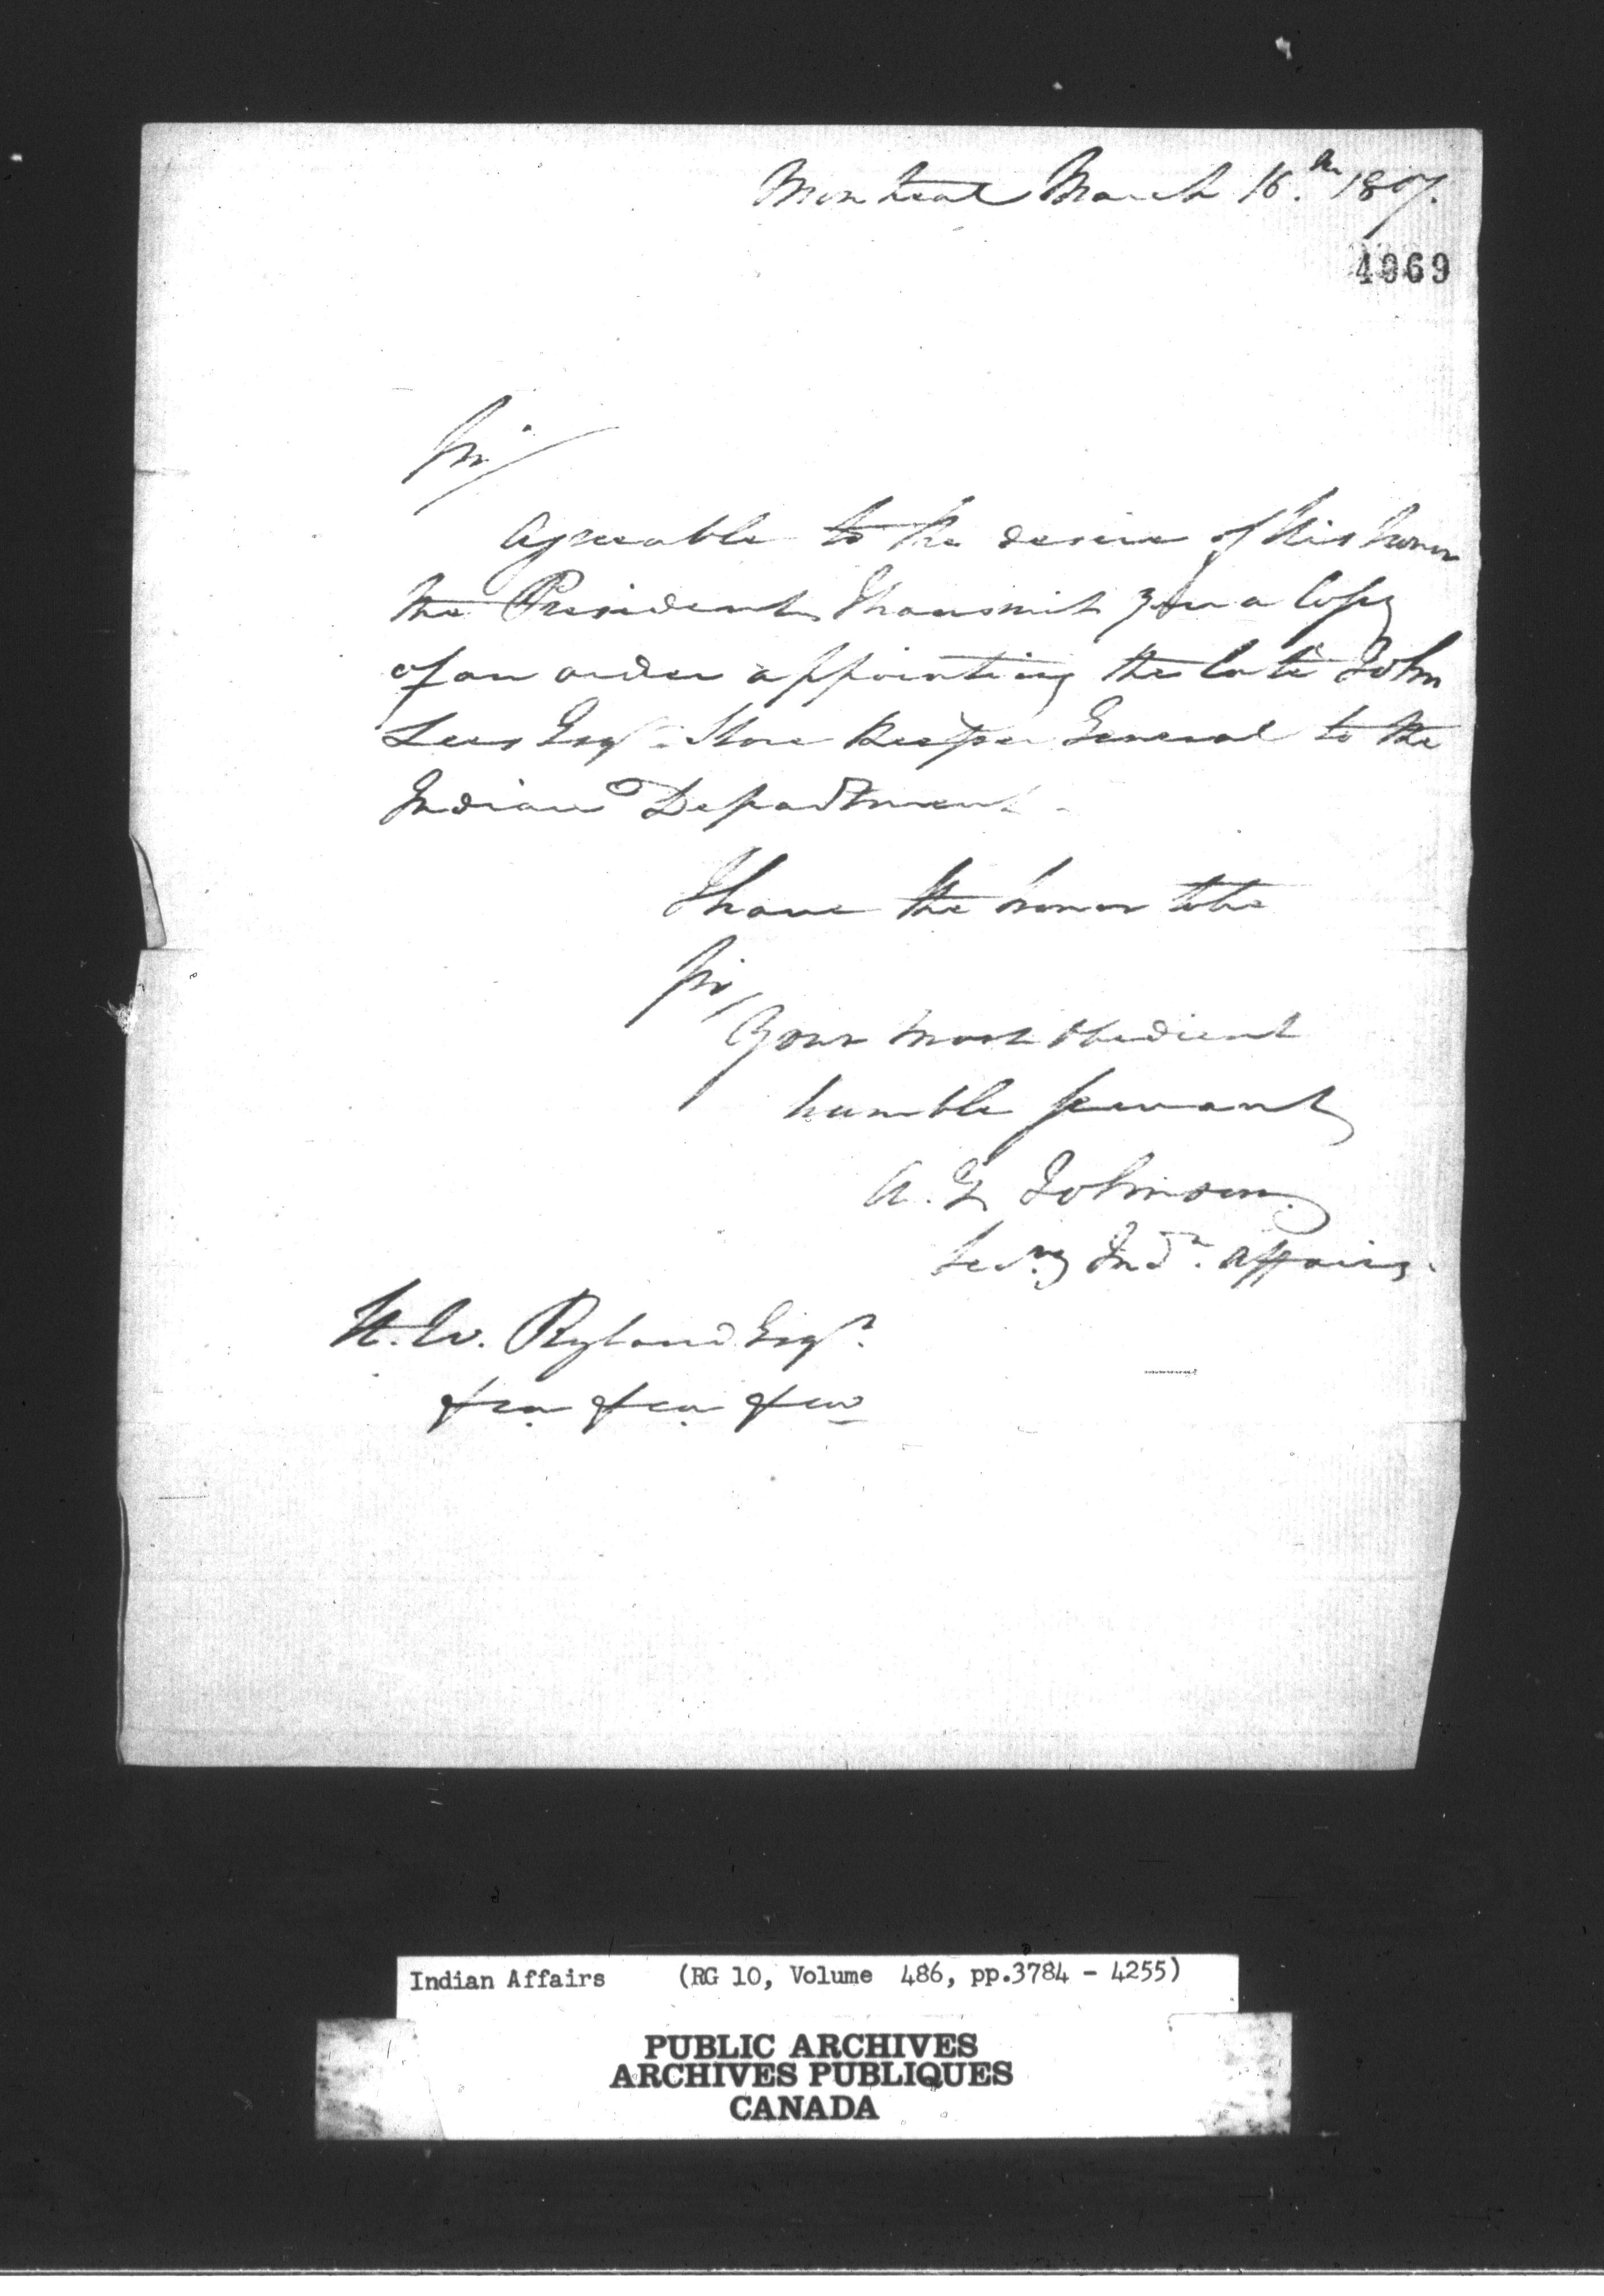 Montreal March 16.th 1807.
4069
Sir/
Agreeable to the desire of His honor
the President I transmit you a Copy
of an order appointing the late John
Lees Esqr. Store Keeper General to the
Indian Department.
I have the honor to be
Sir,
Your most obedient
humble Servant
Johnson
Secry. Indn. Affairs.
H. W. Ryland Esqr.
&ca &ca &ca
Indian Affairs (RG 10, Volume 486, pp.3784 - 4255)
PUBLIC ARCHIVES
ARCHIVES PUBLIQUES
CANADA